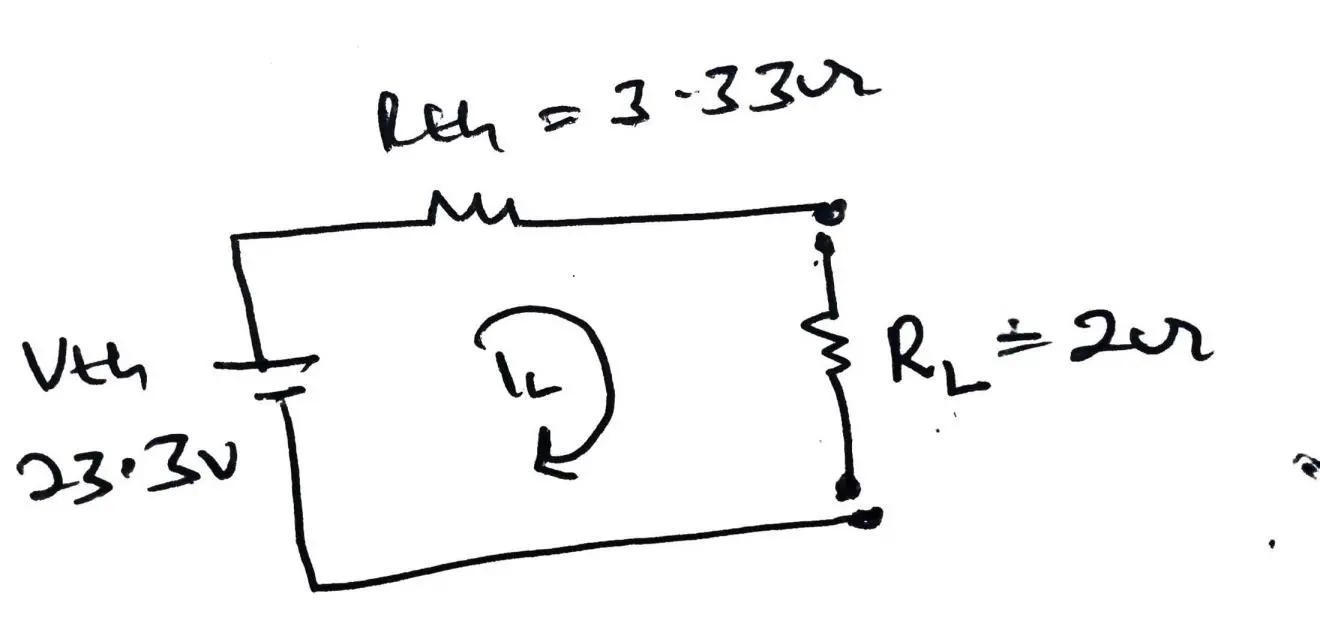 Rth = 3.33Ω
Vth
23.3V
IL
RL = 2Ω